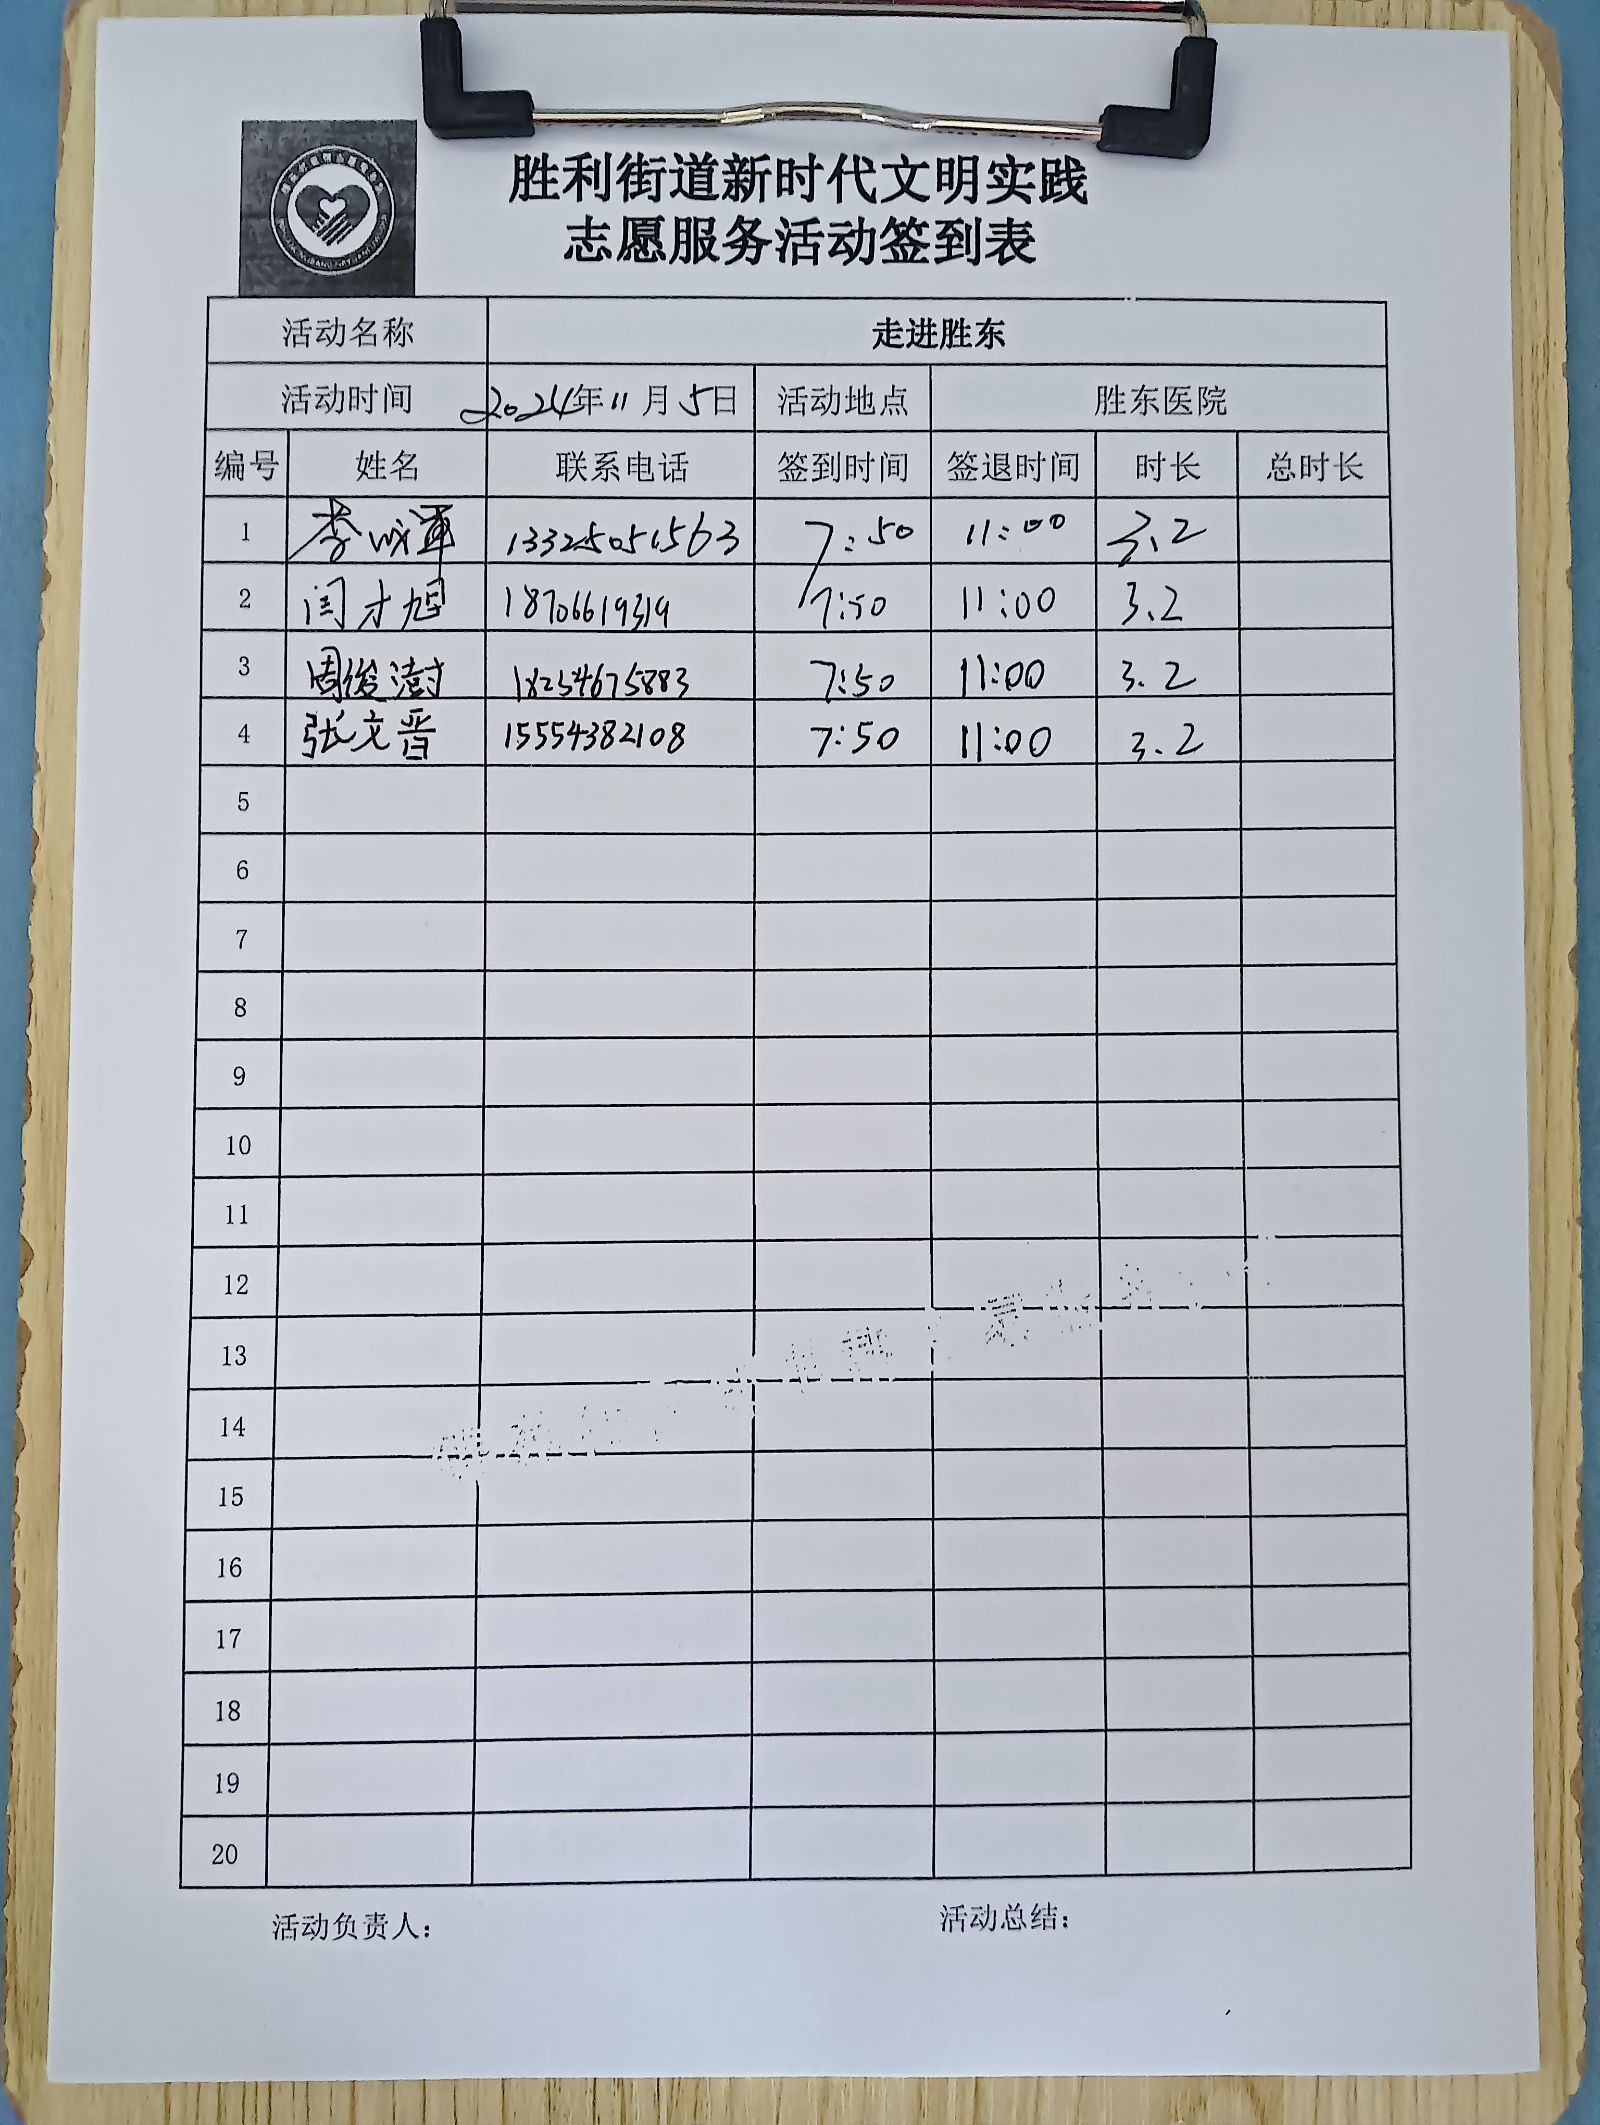 胜利街道新时代文明实践
志愿服务活动签到表
活动名称 走进胜东
活动时间 2024年11月5日 活动地点 胜东医院
编号 姓名 联系电话 签到时间 签退时间 时长 总时长
1 李成軍 13325051563 7:50 11:00 3.2
2 闫才旭 18706619319 7:50 11:00 3.2
3 周俊澍 18254675883 7:50 11:00 3.2
4 张文晋 15554382108 7:50 11:00 3.2
5
6
7
8
9
10
11
12
13
14
15
16
17
18
19
20
活动负责人: 活动总结: